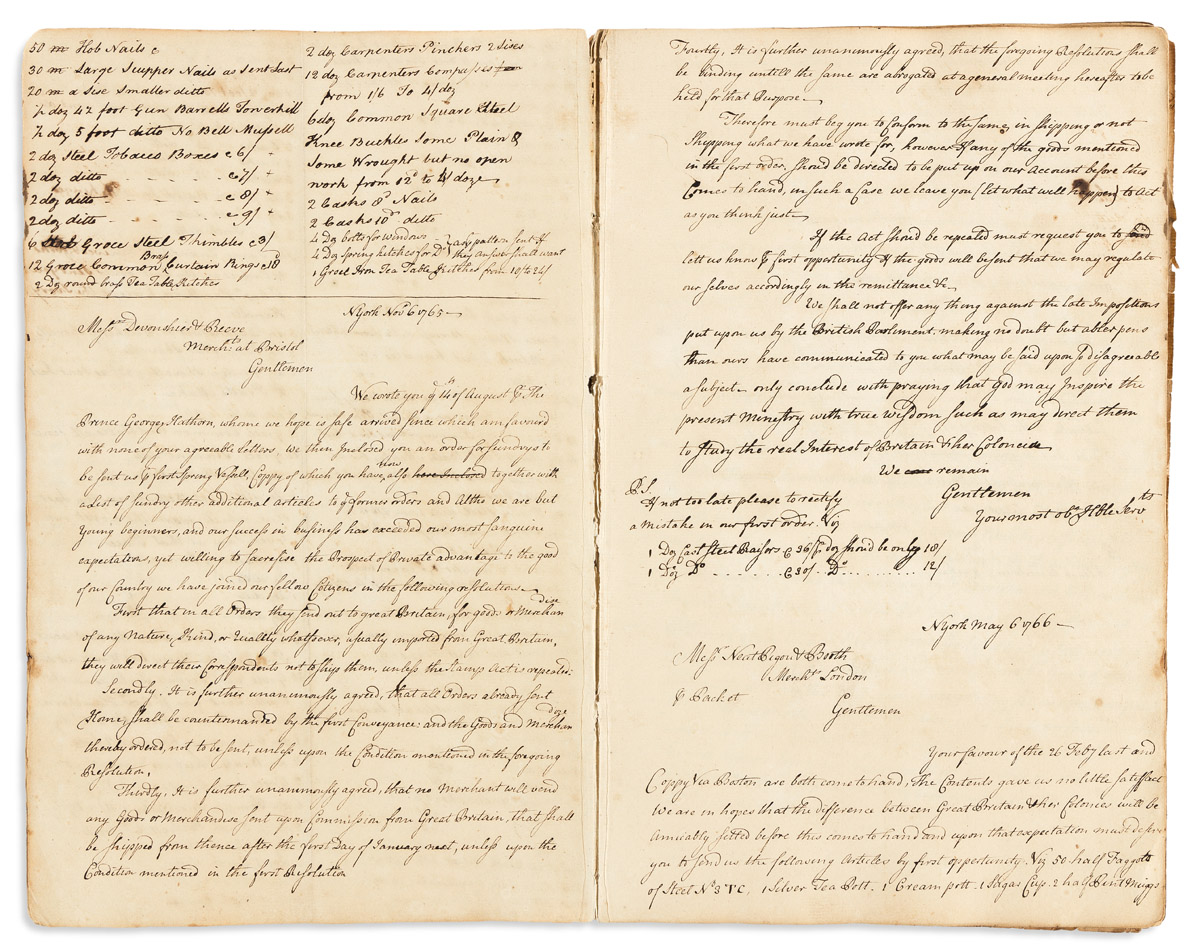 50 m Hob Nails c
30 m Large Scupper Nails as Sent Last
20 m a Sise Smaller ditto
½ doz 4½ foot Gun Barrells Torverhill
½ doz 5 foot ditto No Bell Mussell
2 doz Steel Tobacco Boxes c 6/
2 doz ditto c 7/
2 doz ditto c 8/
2 doz ditto c 9/
6 Groce Steel Thimbles c 3/
12 Groce Common Brass Curtain Rings c 18
2 Doz round brass Tea Table Kitches
2 doz Carpenters Pinchers 2 Sises
12 doz Carpenters Compasses
from 1/6 To 4/ doz
6 doz Common Square Steel
Knee Buckles Some Plain &
Some Wrought but no open
work from 12d to 4/ doze
2 Casks 8d Nails
2 Casks 10d ditto
4 Dz bolts for windows
4 Dz Spring kitches for Do
as pattern sent if
they answer shall want
1 Groce Iron Tea Table Kitches from 18 to 24/
NYork Novr 6 1765
Messrs Devonshier & Reeve
Merchts at Bristol
Gentlemen
We wrote you ye 14th of August ⅌ The
Prince George, Hathorn, whome we hope is safe arrived since which am favourd
with none of your agreeable Letters. We then Inclosed you an order for Sundrys to
be sent us ⅌ first Spring Vessell, Coppy of which you have now also here Inclosed together with
a List of Sundry other additional articles to ye former orders and Altho we are but
Young beginners, and our success in business has exceeded our most sanguine
expectations, yet willing to sacrefise the Prospect of Private advantage to the good
of our Country we have joined our fellow Citizens in the following resolutions
First that in all Orders they send out to great Britain, for goods or Merchandise
of any Nature, Kind, or Quallety whatsoever, usually imported from Great Britain,
they will direct their Correspondents not to ship them, unless the Stamp Act is repealed.
Secondly. It is further unanimously agreed, that all Orders already sent
Home, shall be countermanded by the first Conveyance: and the Goods and Merchandoze
thereby ordered, not to be sent, unless upon the Condition mentioned in the foregoing
Resolution.
Thirdly, It is further unanimously agreed, that no Merchant will vend
any Goods or Merchandise sent upon Commission from Great Britain, that shall
be shipped from thence after the first Day of January next, unless upon the
Condition mentioned in the first Resolution
Fourtly, It is further unanimously agreed, that the foregoing Resolutions shall
be binding untill the same are abrogated at a general meeting hereafter to be
held for that Purpose
Therefore must beg you to conform to the same, in shipping or not
Shipping what we have wrote for, however if any of the goods mentioned
in the first order, should be directed to be put up on our Account before this
Comes to hand, in such a Case we leave you (let what will happen) to Act
as you think just
If the Act should be repeated must request you to
lett us know ⅌ first opportunity if the goods will be sent that we may regulate
our selves accordingly in the remittance &c
We shall not offer any thing against the late Impositions
put upon us by the British Parliment, making no doubt but abler pens
than ours have communicated to you what may be said upon so disagreeable
a subject only conclude with praying that God may Inspire the
present Ministry with true Wisdom such as may direct them
to Study the real Interest of Britain & her Colonies
We remain
Gentlemen
Your most obt Hble Servts
P.S.
If not too late please to rectify
a mistake in our first order. Viz
1 Doz Cast Steel Raisors c 36/ ⅌ doz should be only 18/
1 Doz Do c 30/ Do 12/
NYork May 6 1766
Messrs Neat Pigou & Booth
Merchts London
⅌ Packet
Gentlemen
Your favour of the 26 Feby last and
Coppy Via Boston are both come to hand, The Contents gave us no little satisfact
We are in hopes that the difference between Great Britain & her Colonies will be
Amicably settled before this comes to hand and upon that expectation must desire
you to send us the following Articles by first opportunity. Viz 50 half Faggots
of Steel No 3 TC. 1 Silver Tea Pott. 1 Cream pott. 1 Sugar Cup. 2 half Pint Muggs